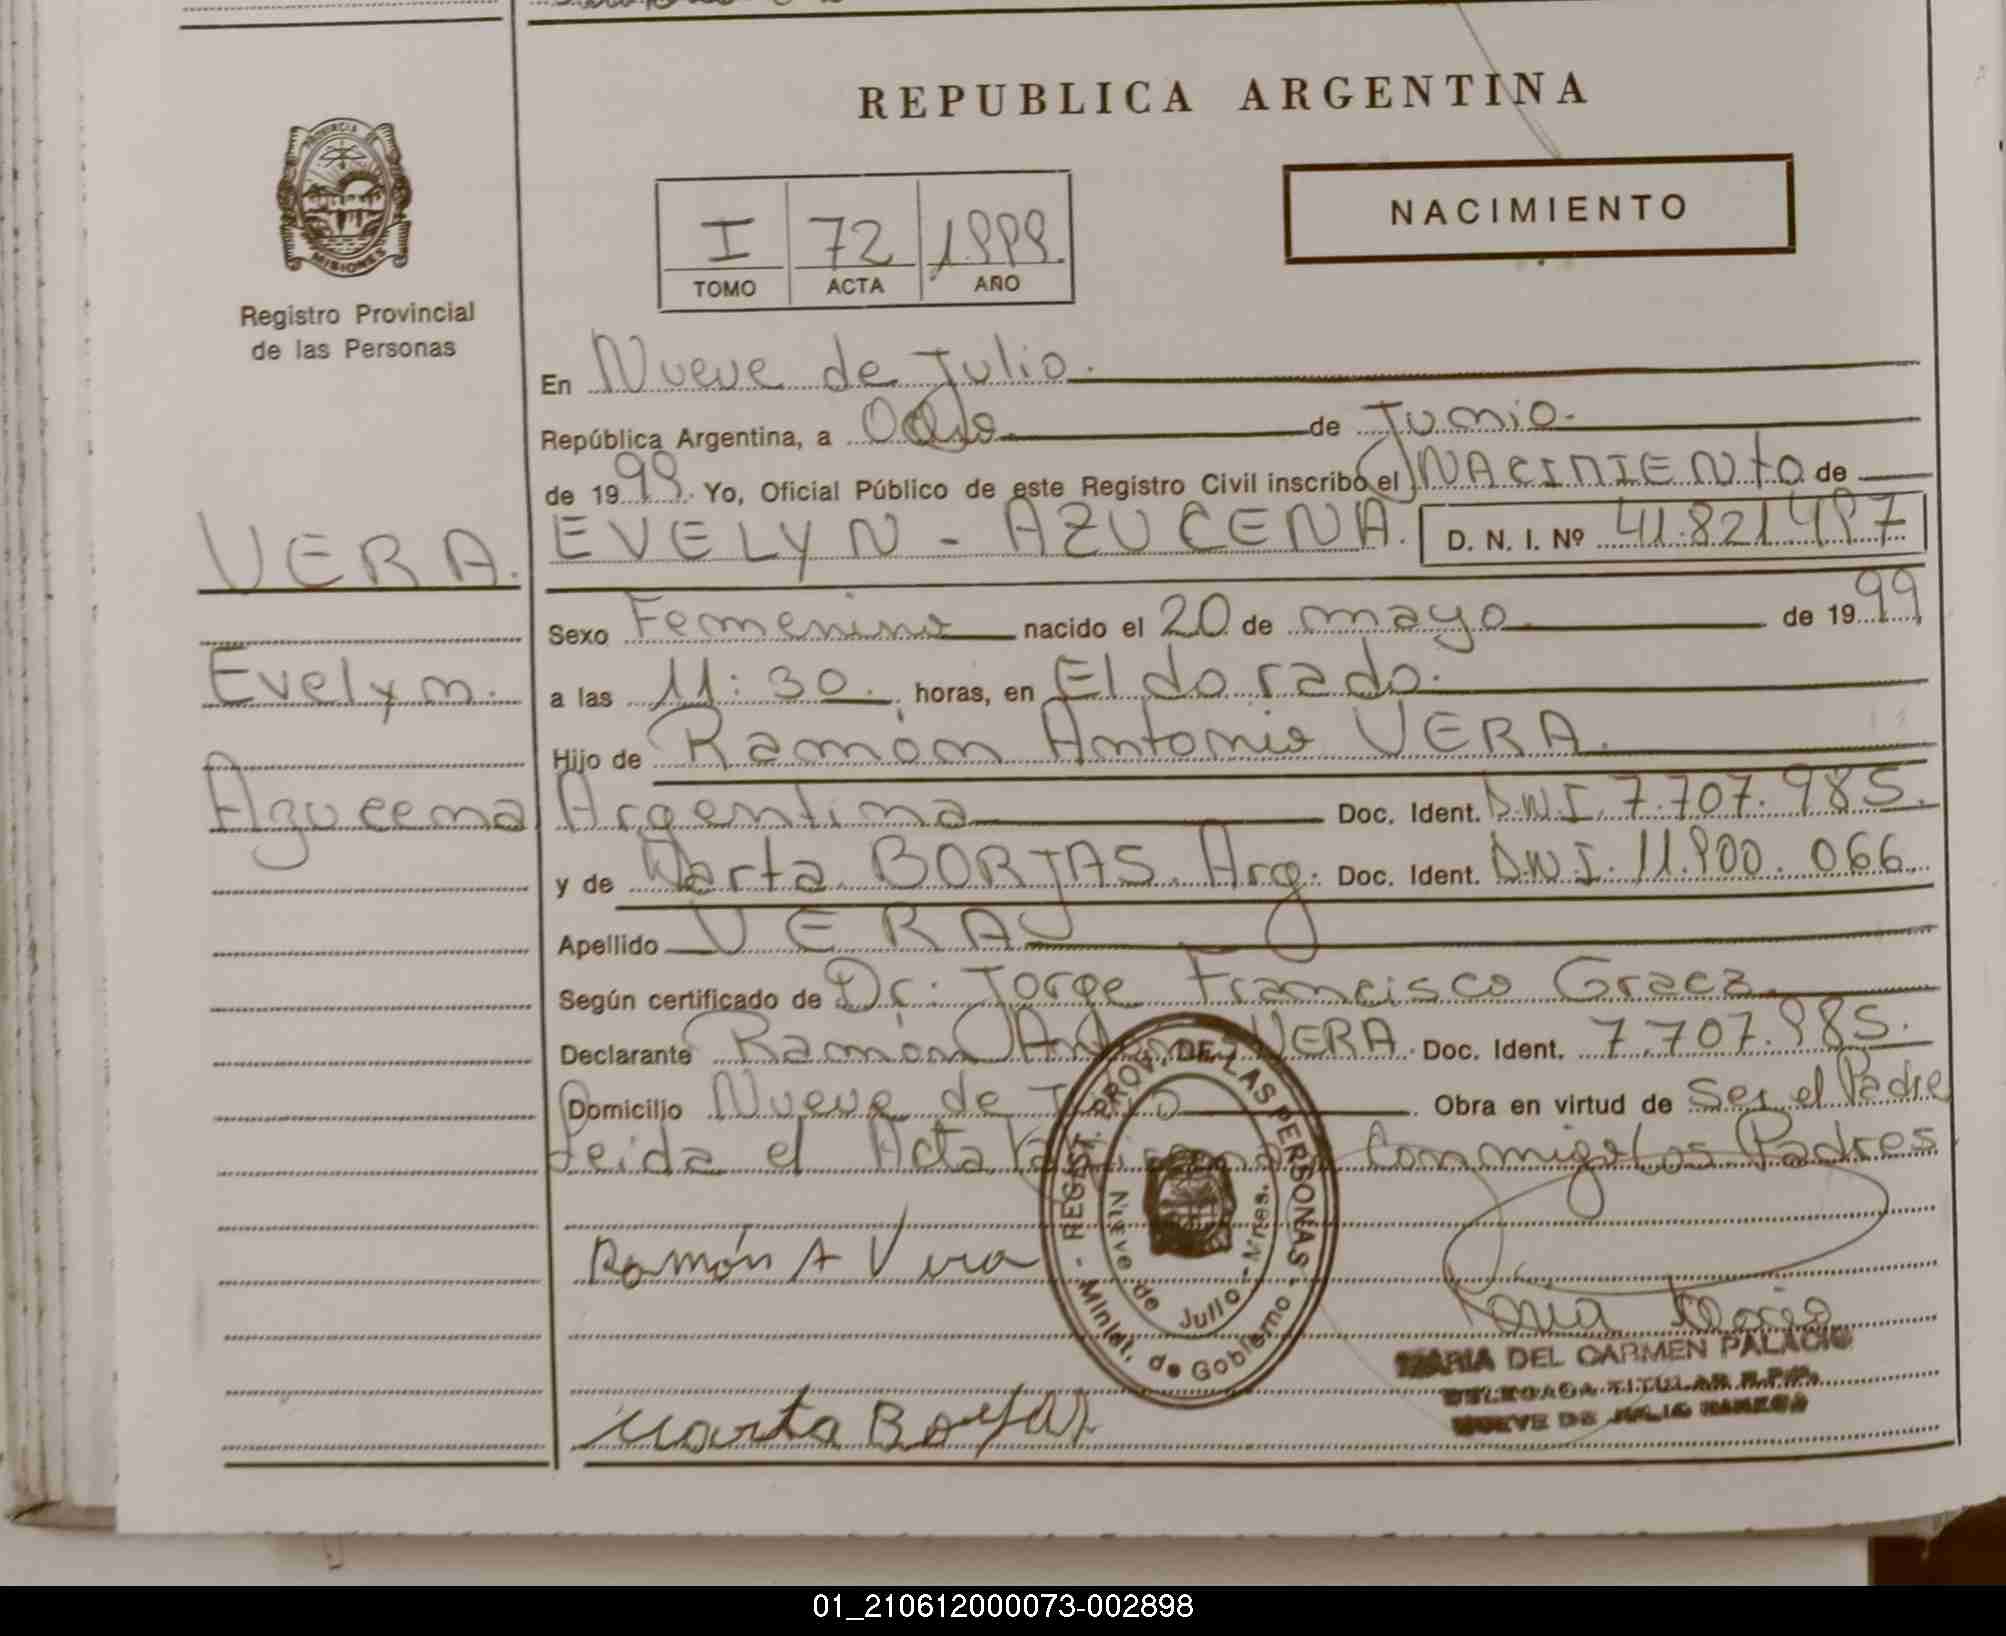 REPUBLICA ARGENTINA
NACIMIENTO
PROVINCIA DE
MISIONES
Registro Provincial
de las Personas
I 72 1.999.
TOMO ACTA AÑO
En Nueve de Julio.
República Argentina, a Ocho de Junio.
de 1999. Yo, Oficial Público de este Registro Civil inscribo el NACIMIENTO de
VERA. EVELYN - AZUCENA. D. N. I. Nº 41.821.497
Sexo Femenino nacido el 20 de mayo de 1999
Evelyn. a las 11:30. horas, en Eldorado.
Hijo de Ramón Antonio VERA.
Azucena Argentina Doc. Ident. D.N.I. 7.707.985.
y de Marta BORJAS. Arg. Doc. Ident. D.N.I. 11.900.066
Apellido VERA
Según certificado de Dr. Jorge Francisco Graca
Declarante Ramón Antonio VERA. Doc. Ident. 7.707.985.
Domicilio Nueve de Julio Obra en virtud de Ser el Padre
Leida el Acta conmigo los Padres
REGIST. PROV. DE LAS PERSONAS - Minist. de Gobierno -
Nueve de Julio - Mnes.
Ramón A Vera
MARIA DEL CARMEN PALACIO
DELEGADA TITULAR R.P.P.
NUEVE DE JULIO
Marta Borjas
01_210612000073-002898